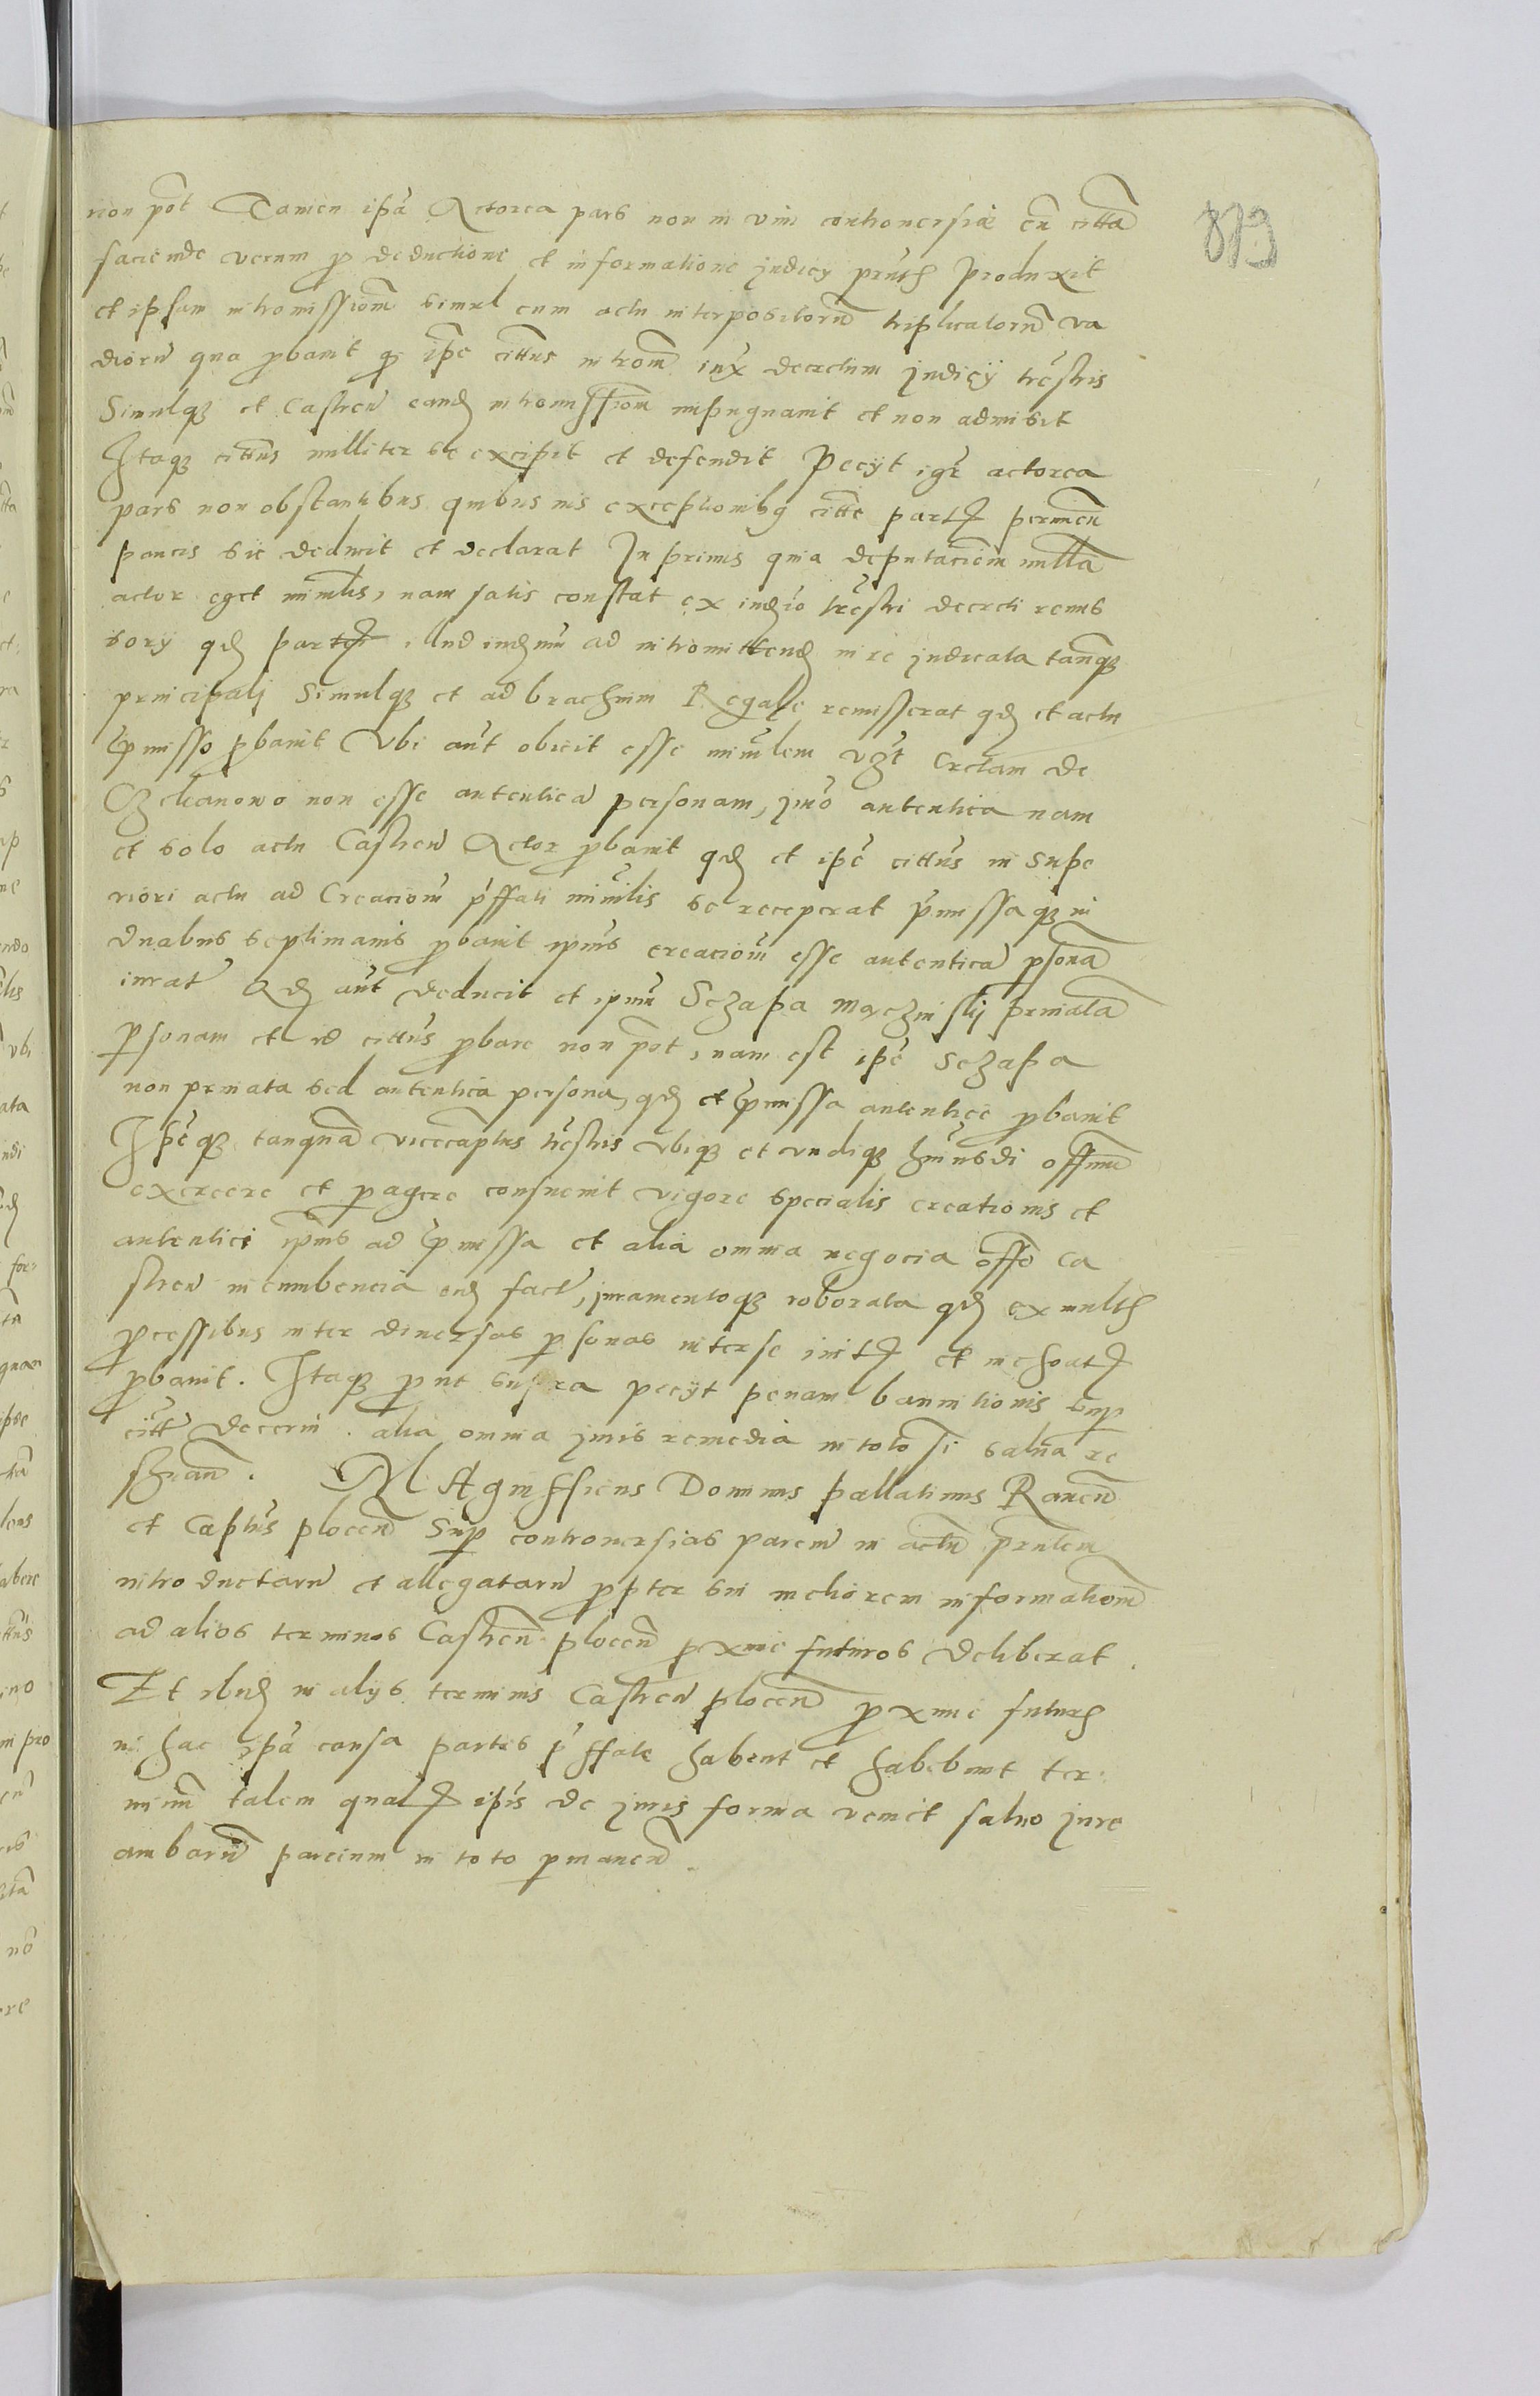 819
non pot Tamen ipa Actorea pars non in vim controuersiæ cu citta
faciende verum p deductione et informatione judicy pntis produxit
et ipsam intromissiom simul cum actu interpositoru triplicatoru va
dioru qua pbauit q ipe cittus introm iux decretum judicÿ trestris
Simulqz et Castren eand intromissiom impugnauit et non admisit
Itaqz cittus nulliter se excipit et defendit Pecÿt igr actorea
pars non obstantibus quibusuis exceptionibz citte partis
paucis sic deducit et declarat In primis quia deputaciem nulla
actor eget mimlis, nam satis constat ex indio trestri decreti remis
sory qd partes illud ad intromittend in re judicata tanqz
principalj Simulqz et ad brachium Regale remisserat qd et actu
pmisso pbauit Vbi aut obicit esse Erctam de
Czekanowo non esse autentica personam, jmo autentica nam
et solo actu Castren Actor pbauit qd et ipe cittus in Supe
riori actu ad Creaciom pffati mimlis se receperat pmissaqz in
duabus septimanis pbauit ipius creaciom esse autentica psona
iurat Qd aut deducit et ipmu Sczapa priuata
psonam et id cittus pbare non pot, nam est ipe Sczapa
non priuata sed autentica persona, qd et pmissa autentice pbauit
Ipeqz tanqua vicecaptus trestris vbiqz et vndiqz huiusdi offium
exercere et pagere consueuit vigore specialis creationis et
autentici ipius ad pmissa et alia omnia negocia offo ca
stren incumbencia eud fact, juramentoqz roborata qd ex multis
pcessibus inter diuersas psonas inter se initis et inchoatis
pbauit. Itaqz put supra pecÿt penam bannitionis sup
citt decerni. alia omnia juris remedia in toto si salua re
seruan. MAgnifficus Dominus pallatinus Rauen
et Captus plocen Sup controuersias parciu in actu pntem
introductaru et allegataru ppter sui meliorem informatiom
ad alios terminos Castren plocen pxime futuros deliberat.
Et ibid in alijs terminis Castren plocen pxime futuris
in hac ipa causa partes pffate habent et habebunt ter
minu talem qualis ipis de juris forma venit saluo jure
ambaru parcium in toto pmanen.